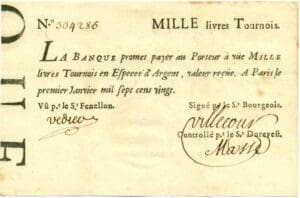 N.° 304286 MILLE livres Tournois.
LA BANQUE promet payer au Porteur à vüe MILLE
livres Tournois en Especes d'Argent, valeur reçüe. A Paris le
premier Janvier mil sept cens vingt.
Vû p.r le S.r Fenellon. Signé p.r le S.r Bourgeois.
Controllé p.r le S.r Durevest.